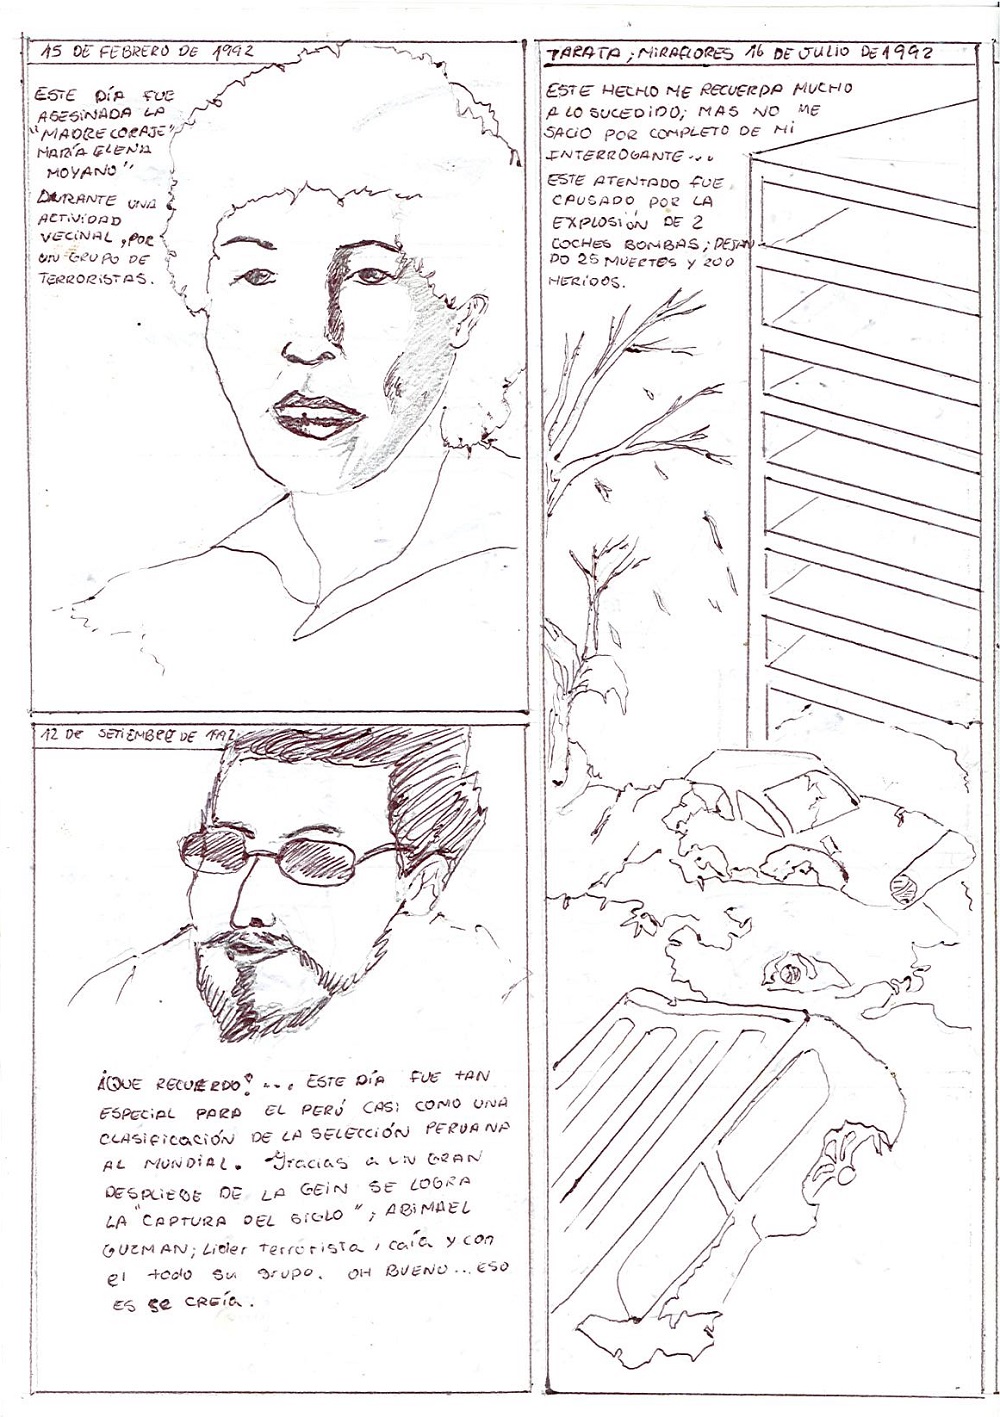 15 DE FEBRERO DE 1992
ESTE DÍA FUE
ASESINADA LA
"MADRE CORAJE"
MARÍA ELENA
MOYANO"
DURANTE UNA
ACTIVIDAD
VECINAL, POR
UN GRUPO DE
TERRORISTAS.
TARATA; MIRAFLORES 16 DE JULIO DE 1992
ESTE HECHO ME RECUERDA MUCHO
A LO SUCEDIDO; MAS NO ME
SACIO POR COMPLETO DE MI
INTERROGANTE...
ESTE ATENTADO FUE
CAUSADO POR LA
EXPLOSIÓN DE 2
COCHES BOMBAS; DEJAN
DO 25 MUERTES Y 200
HERIDOS.
12 DE SETIEMBRE DE 1992
¡QUE RECUERDO! ... ESTE DÍA FUE TAN
ESPECIAL PARA EL PERÚ CASI COMO UNA
CLASIFICACIÓN DE LA SELECCIÓN PERUANA
AL MUNDIAL. Gracias a UN GRAN
DESPLIEGE DE LA GEIN SE LOGRA
LA "CAPTURA DEL SIGLO"; ABIMAEL
GUZMAN; Lider terrorista, caía y con
el todo su grupo. OH BUENO... ESO
ES SE CREÍA.